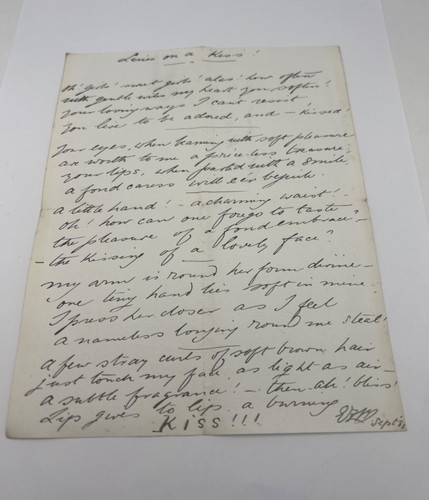 Lines on a "Kiss"!
Oh! girls! sweet girls! alas! how often
with gentle wiles my heart you soften!
Your loving ways I can't resist,
You live to be adored, and – kissed!
Your eyes, when beaming with soft pleasure
are worth to me a price-less treasure;
your lips, when parted with a smile
a fond caress will e'er beguile.
a little hand! – a charming waist! –
oh! how can one forego to taste
the pleasure of a fond embrace? –
– the kissing of a lovely face?
my arm is round her form divine –
one tiny hand lies soft in mine!
I press her closer as I feel
a nameless longing round me steal!
a few stray curls of soft brown hair
just touch my face as light as air –
a subtle fragrance! – then ah! bliss!
Lip gives to lip a burning
Kiss!!!
Sept